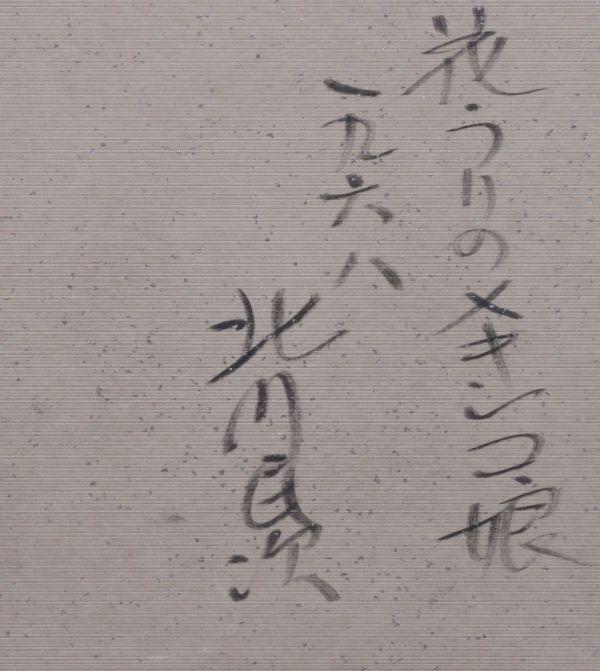 花うりのメキシコ娘
一九六八
北川民次